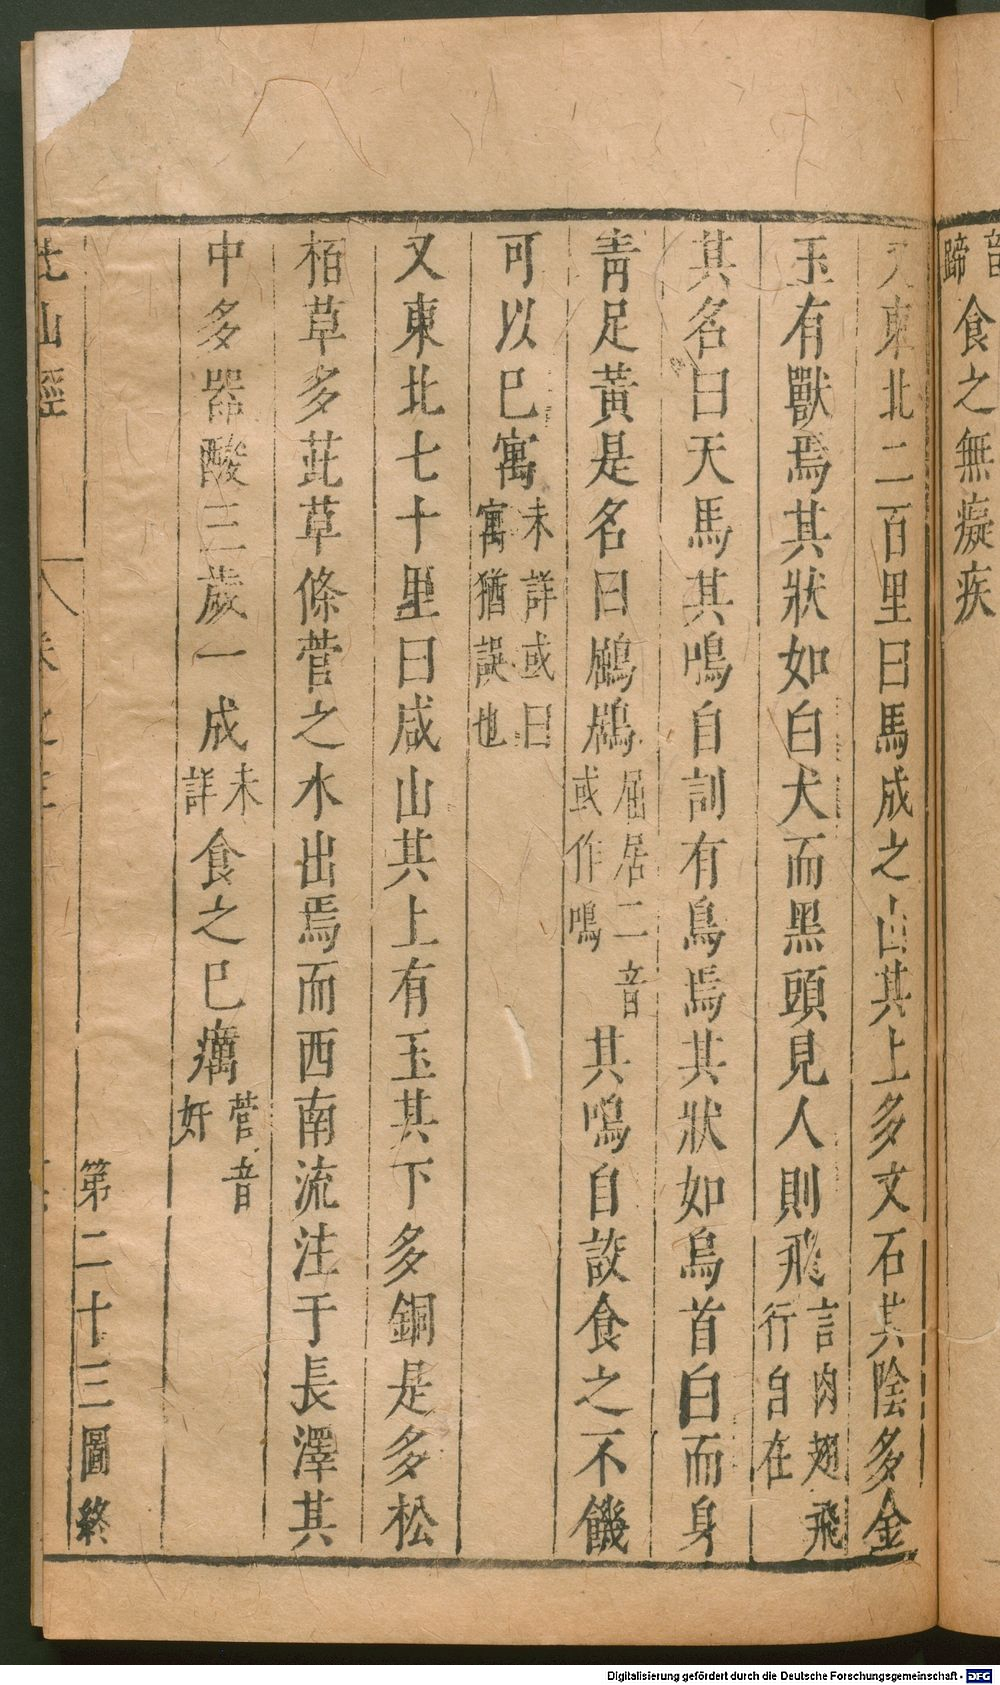 音
蹄食之無癡疾
又東北二百里曰馬成之山其上多文石其陰多金
玉有獸焉其狀如白犬而黑頭見人則飛言肉翅飛行自在
其名曰天馬其鳴自訓有鳥焉其狀如烏首白而身
青足黃是名曰鶌鶋屈居二音或作鳴其鳴自詨食之不饑
可以已寓未詳或曰寓猶誤也
又東北七十里曰咸山其上有玉其下多銅是多松
栢草多茈草條菅之水出焉而西南流注于長澤其
中多器酸三歲一成未詳食之已癘菅音奸
第二十三圖終
北山經
Digitalisierung gefördert durch die Deutsche Forschungsgemeinschaft - DFG